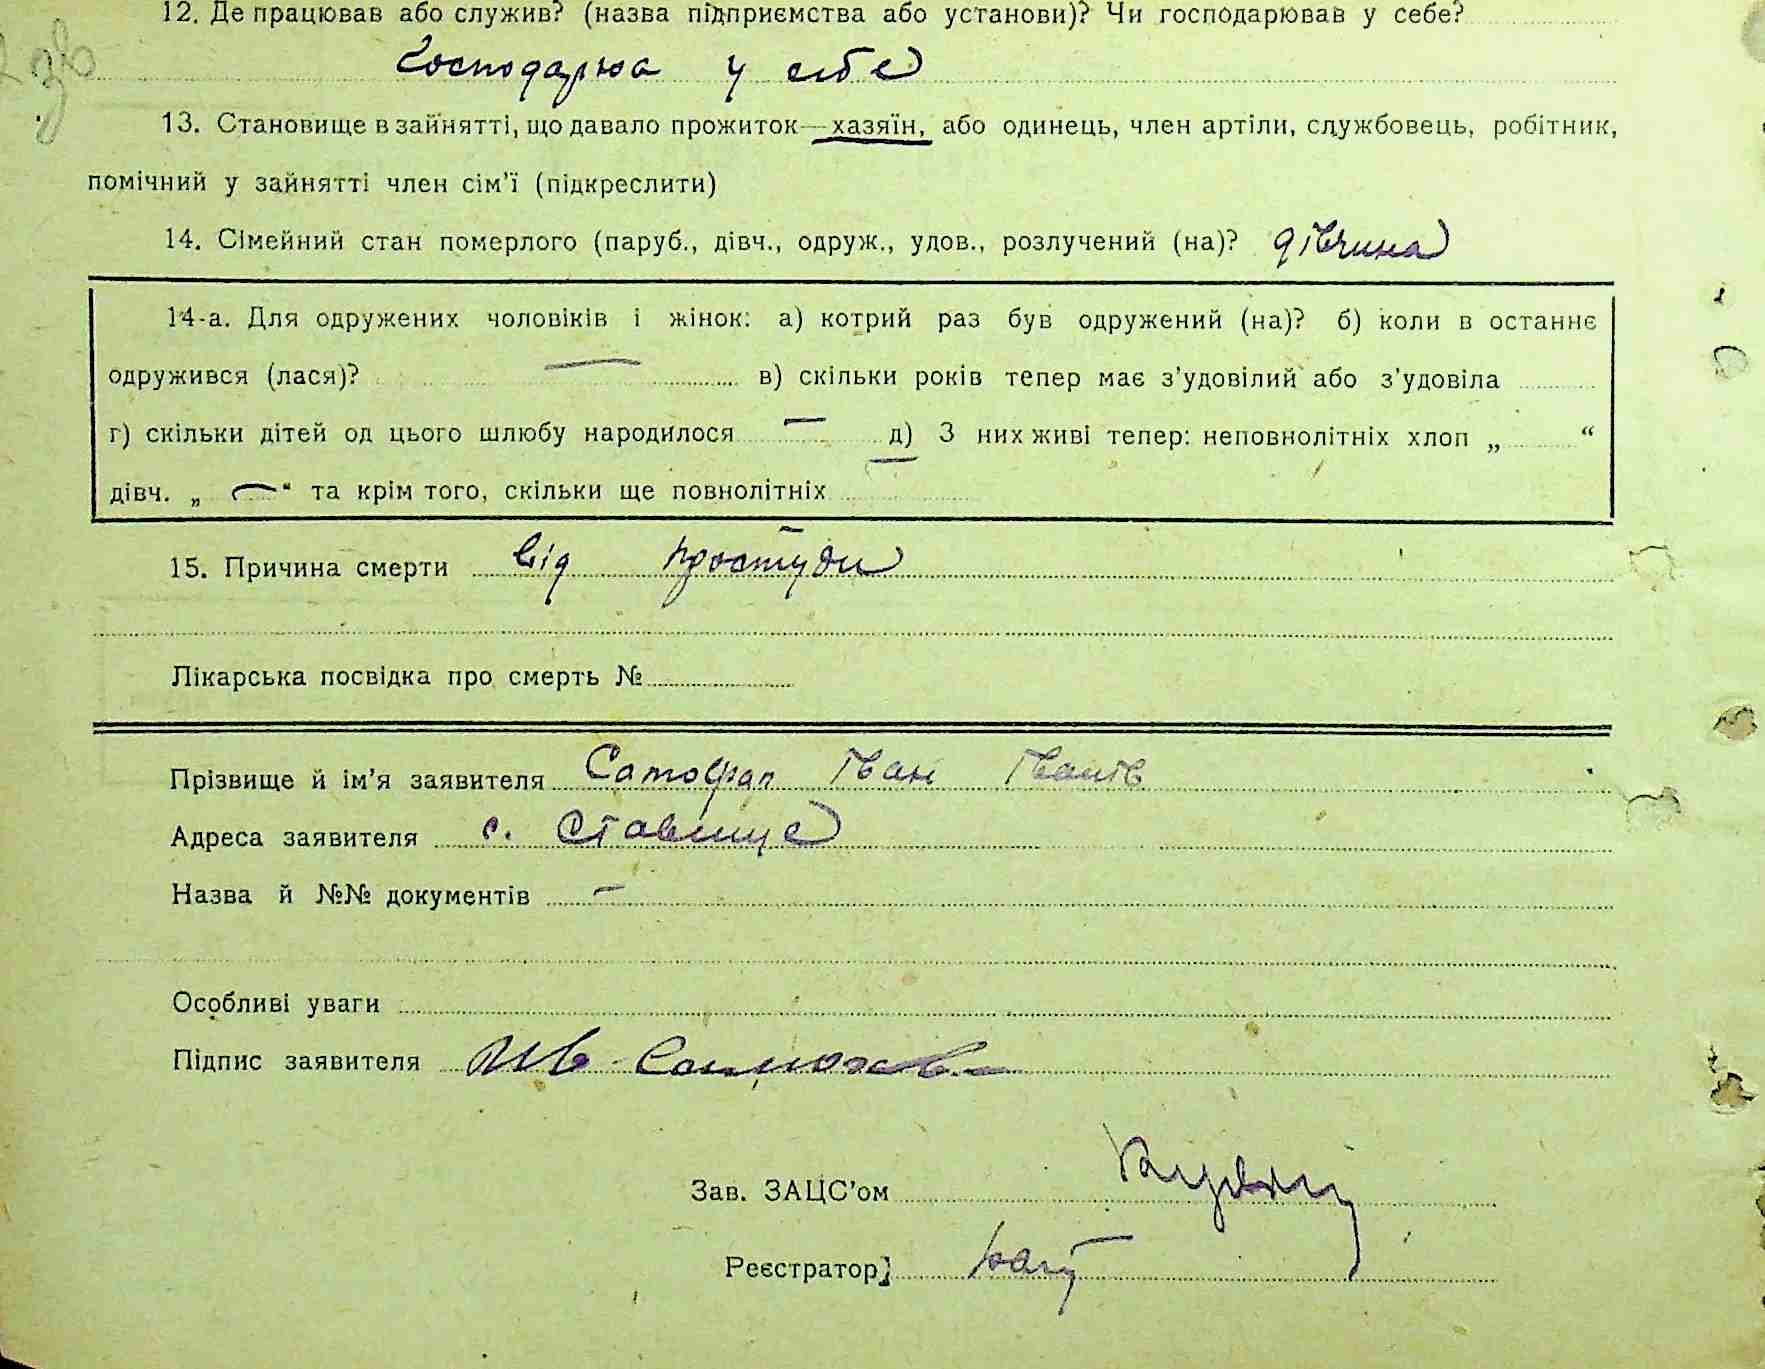 12. Де працював або служив? (назва підприємства або установи)? Чи господарював у себе?
Господарюа у себе
13. Становище в зайнятті, що давало прожиток—хазяїн, або одинець, член артіли, службовець, робітник,
помічний у зайнятті член сім'ї (підкреслити)
14. Сімейний стан померлого (паруб., дівч., одруж., удов., розлучений (на)? дівчина
14-а. Для одружених чоловіків і жінок: а) котрий раз був одружений (на)? б) коли в останнє
одружився (лася)? — в) скільки років тепер має з'удовілий або з'удовіла
г) скільки дітей од цього шлюбу народилося — д) З них живі тепер: неповнолітніх хлоп „ “
дівч. „ — “ та крім того, скільки ще повнолітніх
15. Причина смерти від простуди
Лікарська посвідка про смерть №
Прізвище й ім'я заявителя Іван Іванів
Адреса заявителя с. Ставище
Назва й №№ документів —
Особливі уваги
Підпис заявителя Ив
Зав. ЗАЦС'ом
Реєстратор